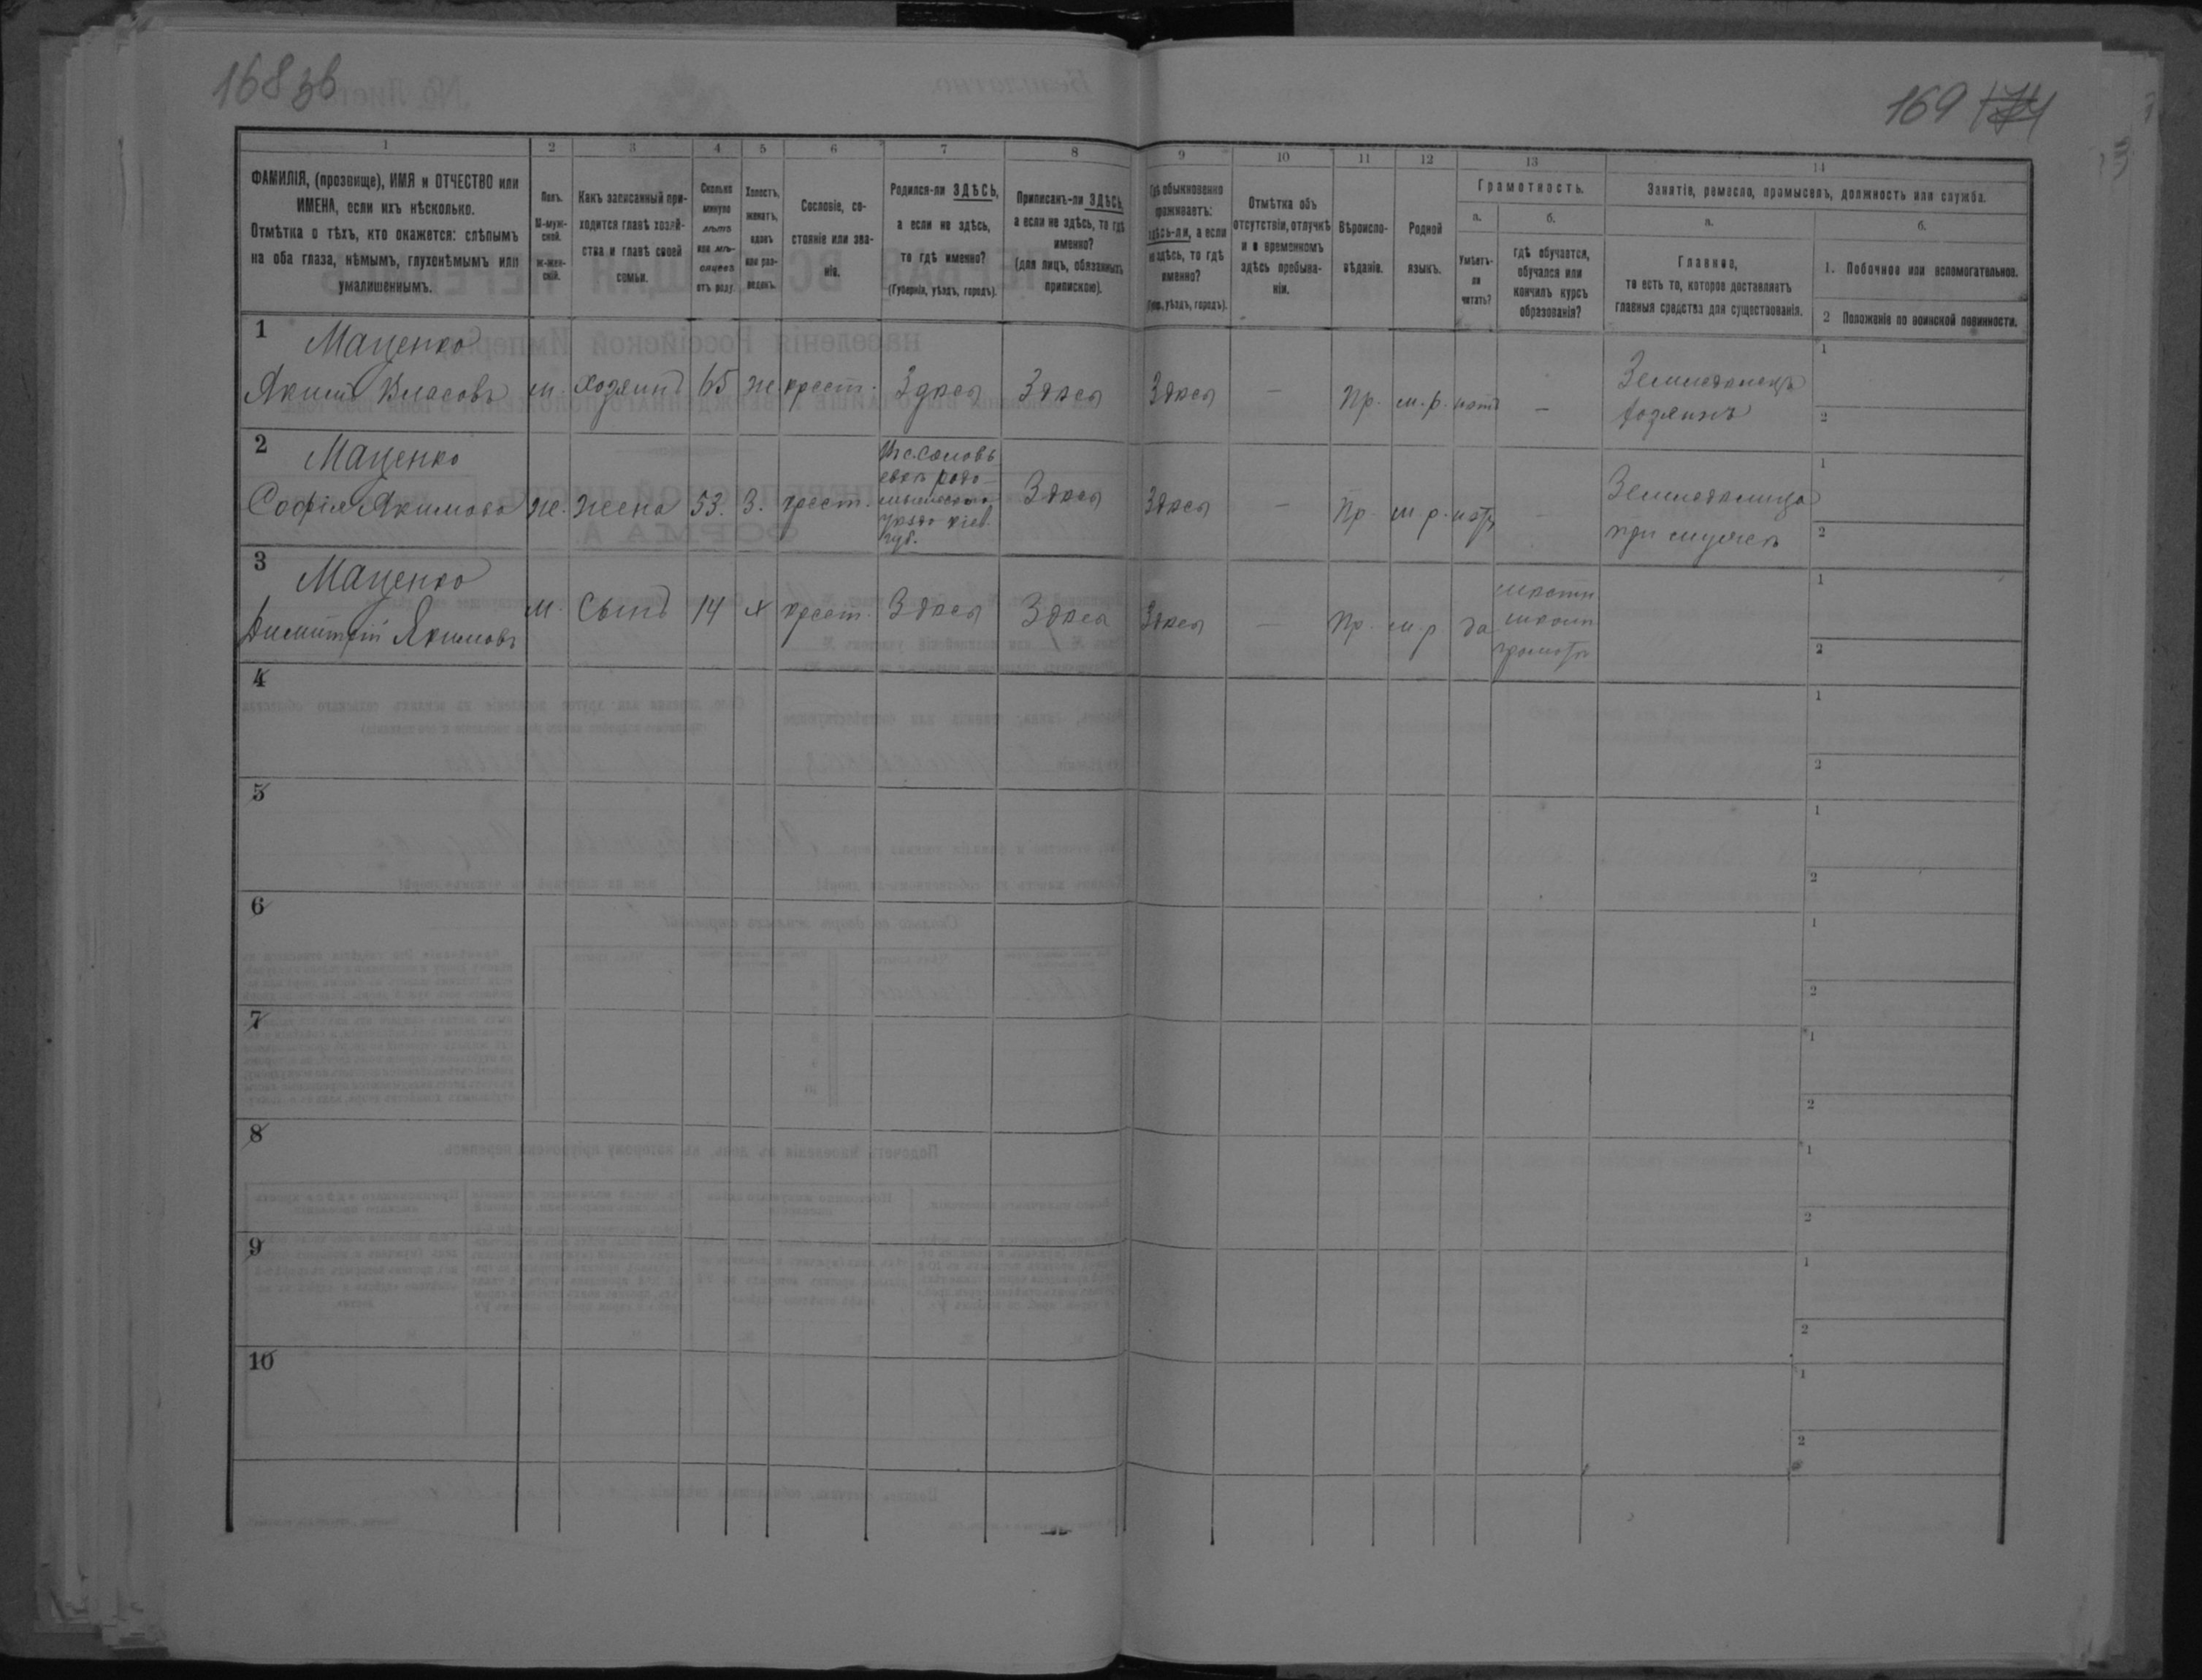 168 зв
169 174
1 2 3 4 5 6 7 8 9 10 11 12 13 14
ФАМИЛІЯ, (прозвище), ИМЯ и ОТЧЕСТВО или
ИМЕНА, если ихъ нѣсколько.
Отмѣтка о тѣхъ, кто окажется: слѣпымъ
на оба глаза, нѣмымъ, глухонѣмымъ или
умалишеннымъ.
Полъ.
М-муж-
ской.
ж-жен-
скій.
Какъ записанный при-
ходится главѣ хозяй-
ства и главѣ своей
семьи.
Сколько
минуло
лѣтъ
или мѣ-
сяцевъ
отъ роду.
Холостъ,
женатъ,
вдовъ
или раз-
веденъ.
Сословіе, со-
стояніе или зва-
ніе.
Родился-ли ЗДѢСЬ,
а если не здѣсь,
то гдѣ именно?
(Губернія, уѣздъ, городъ).
Приписанъ-ли ЗДѢСЬ,
а если не здѣсь, то гдѣ
именно?
(для лицъ, обязанныхъ
припискою).
Гдѣ обыкновенно
проживаетъ:
здѣсь-ли, а если
не здѣсь, то гдѣ
именно?
(Губ., уѣздъ, городъ).
Отмѣтка объ
отсутствіи, отлучкѣ
и о временномъ
здѣсь пребыва-
ніи.
Вѣроиспо-
вѣданіе.
Родной
языкъ.
Грамотность.
а.
Умѣетъ-
ли
читать?
б.
гдѣ обучается,
обучался или
кончилъ курсъ
образованія?
Занятіе, ремесло, промыселъ, должность или служба.
а.
Главное,
то есть то, которое доставляетъ
главныя средства для существованія.
б.
1. Побочное или вспомогательное.
2 Положеніе по воинской повинности.
1 Маценко
Якимъ Власовъ м. хозяинъ 65 ж. крест. Здѣсь Здѣсь Здѣсь — Пр. м.р. нѣтъ —
Земледѣлецъ
хозяинъ
1
2
2 Маценко
Софія Якимова ж. жена 53. З. крест.
уѣзда Кіев.
губ.
Здѣсь Здѣсь — Пр. м р. нѣтъ —
Земледѣлица
при мужѣ
1
2
3 Маценко
Димитрій Якимовъ м. сынъ 14 х крест. Здѣсь Здѣсь Здѣсь — Пр. м.р. да
школѣ
грамоты
1
2
4
1
2
5
1
2
6
1
2
7
1
2
8
1
2
9
1
2
10
1
2